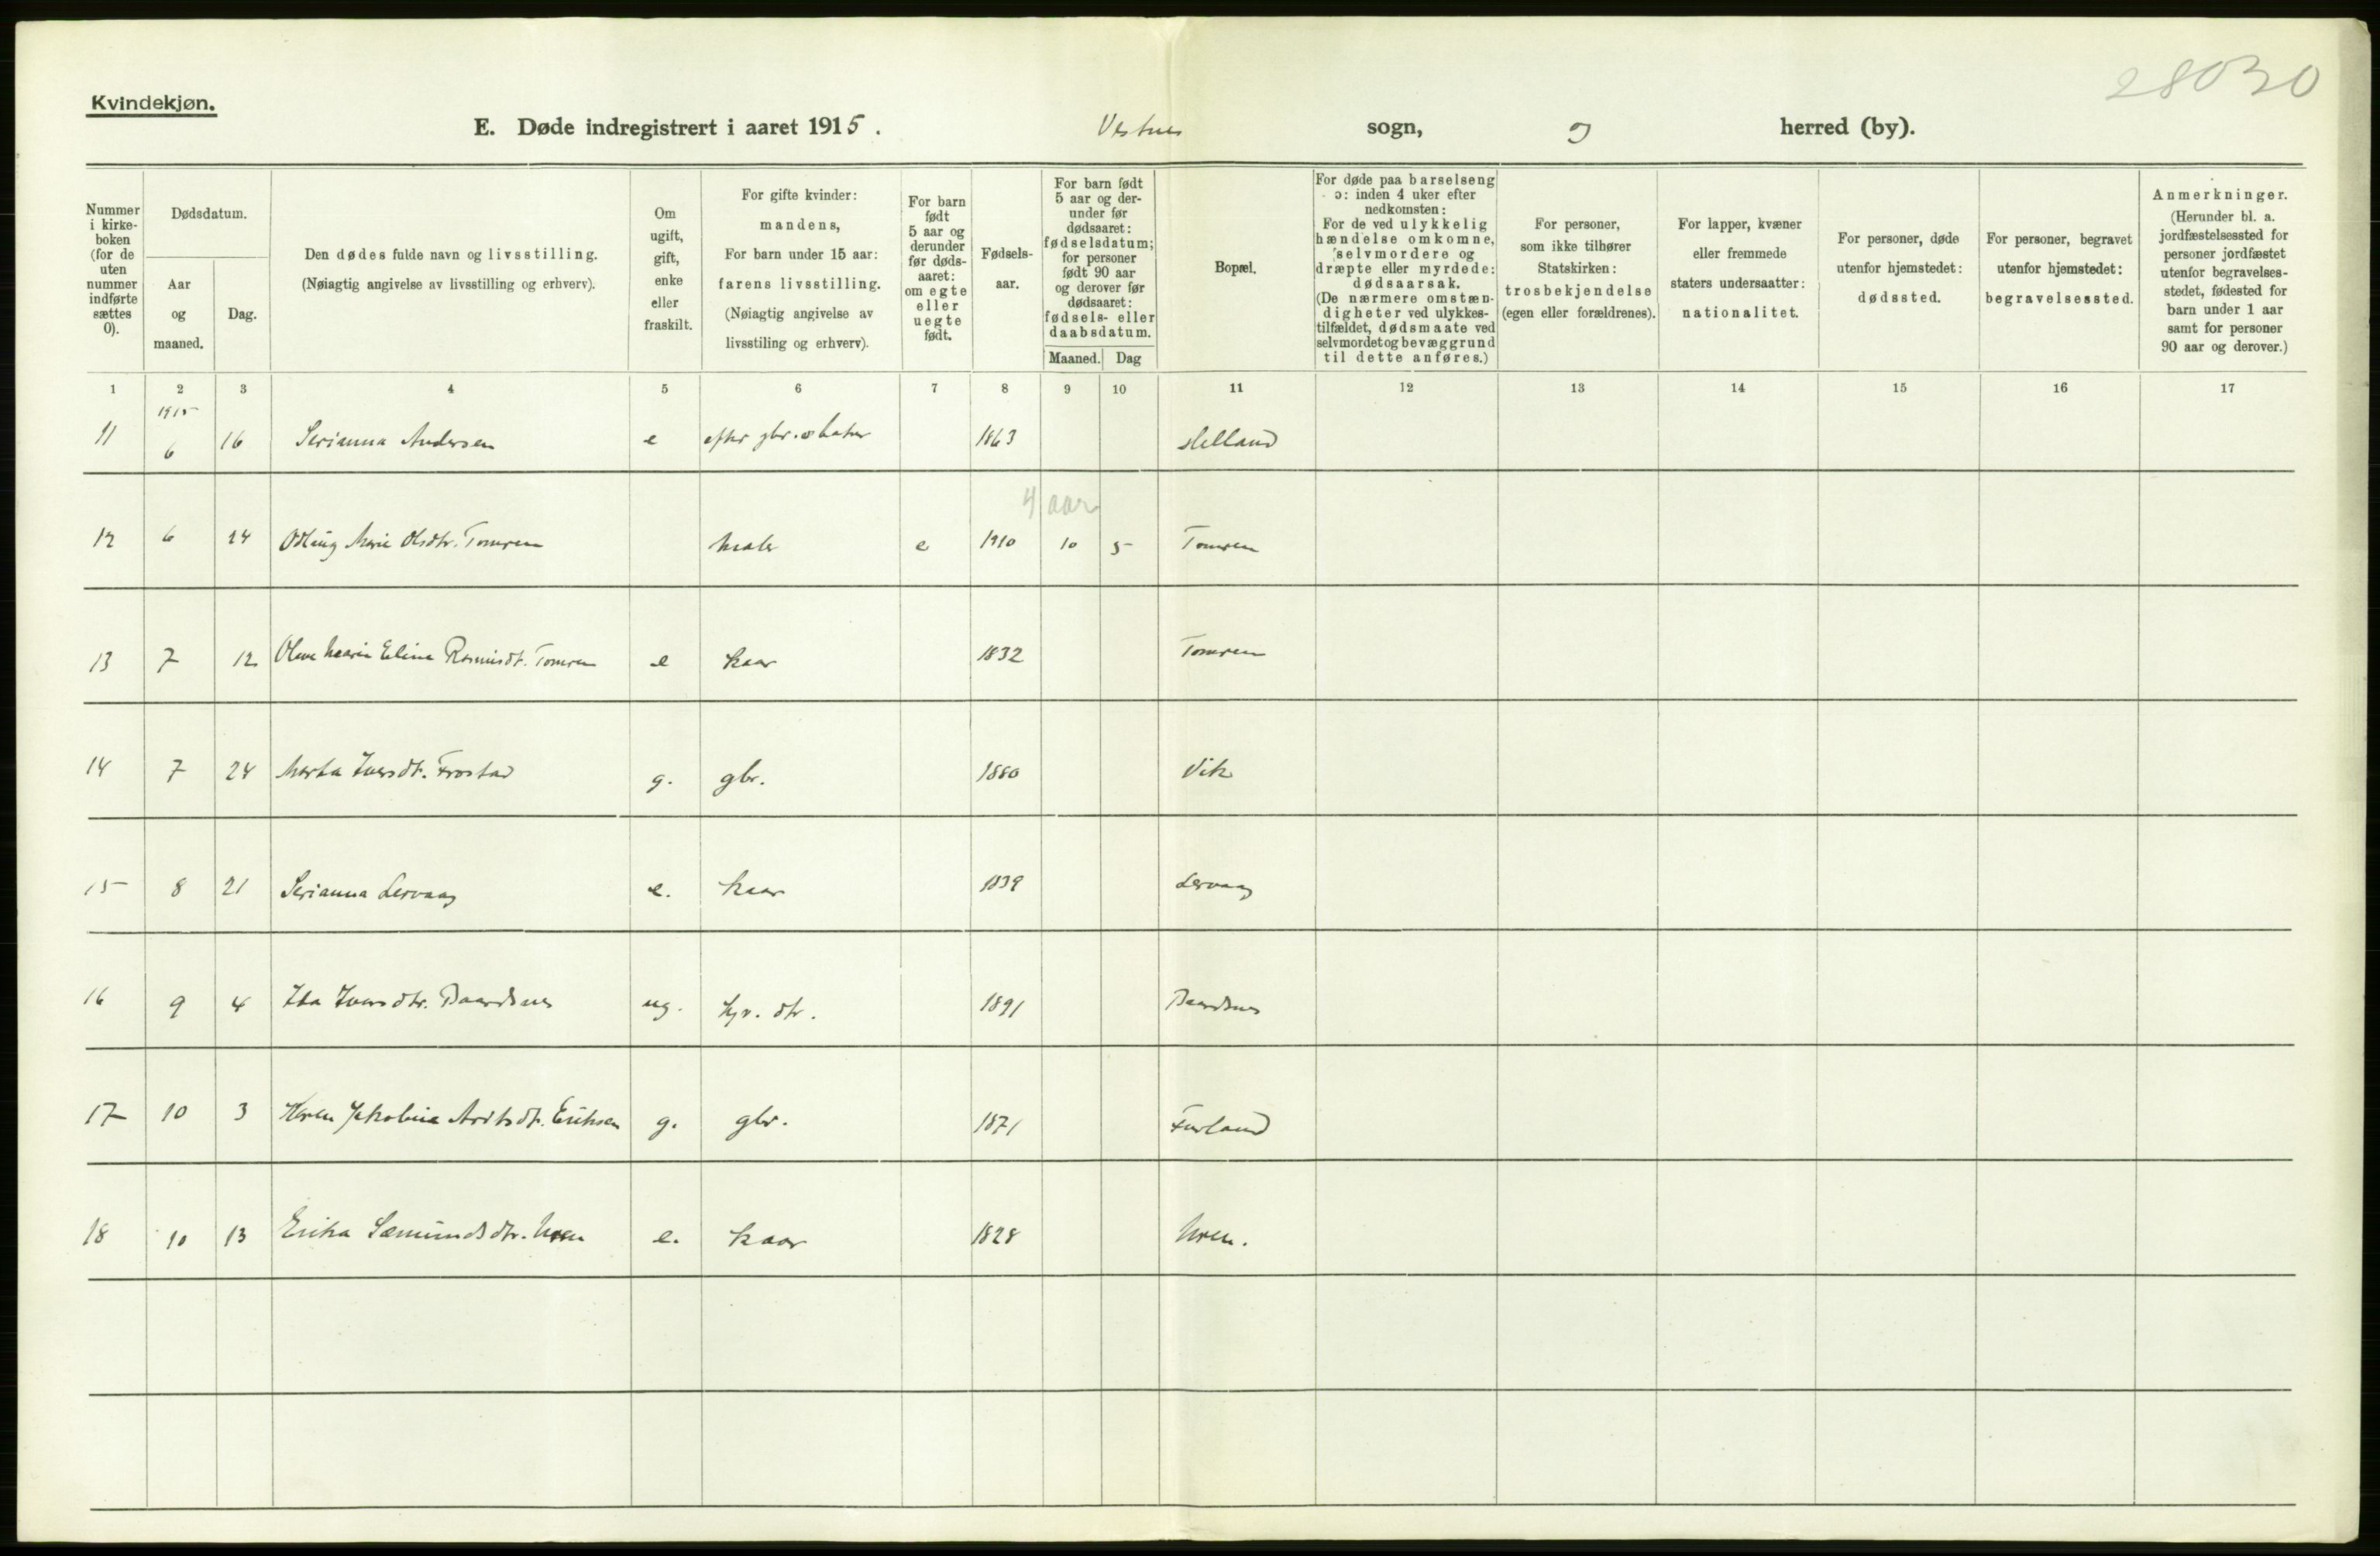 28030
Kvindekjøn.
E. Døde indregistrert i aaret 1915. Vestnes sogn, herred (by).
Nummer i kirkeboken (for de uten nummer indførte sættes 0).
Dødsdatum.
Aar og maaned.
Dag.
Den dødes fulde navn og livsstilling.
(Nøiagtig angivelse av livsstilling og erhverv).
Om ugift, gift, enke eller fraskilt.
For gifte kvinder: mandens,
For barn under 15 aar: farens livsstilling.
(Nøiagtig angivelse av livsstiling og erhverv).
For barn født 5 aar og derunder før dødsaaret: om egte eller uegte født.
Fødselsaar.
For barn født 5 aar og derunder før dødsaaret: fødselsdatum; for personer født 90 aar og derover før dødsaaret: fødsels- eller daabsdatum.
Maaned. Dag
Bopæl.
For døde paa barselseng ɔ: inden 4 uker efter nedkomsten:
For de ved ulykkelig hændelse omkomne, selvmordere og dræpte eller myrdede: dødsaarsak.
(De nærmere omstændigheter ved ulykkestilfældet, dødsmaate ved selvmordet og bevæggrund til dette anføres.)
For personer, som ikke tilhører Statskirken: trosbekjendelse (egen eller forældrenes).
For lapper, kvæner eller fremmede staters undersaatter: nationalitet.
For personer, døde utenfor hjemstedet: dødssted.
For personer, begravet utenfor hjemstedet: begravelsessted.
Anmerkninger.
(Herunder bl. a. jordfæstelsessted for personer jordfæstet utenfor begravelsesstedet, fødested for barn under 1 aar samt for personer 90 aar og derover.)
1 2 3 4 5 6 7 8 9 10 11 12 13 14 15 16 17
1915
11 6 16 Serianna Andersen e efter gbr. 1863 Helland
4 aar
12 6 24 Marie Olsdtr. Tomren maler e 1910 10 5 Tomren
13 7 12 Eline Rasmusdt. Tomren e kaar 1832 Tomren
14 7 24 Marta Iversdt. Frostad g. gbr. 1880 Vik
15 8 21 Serianna Lervaag e. kaar 1839 Lervaag
16 9 4 Ida Iversdtr. Baardsnes ug. dtr. 1891 Baardsnes
17 10 3 Jakobine Eriksen g. gbr. 1871 Furland
18 10 13 Erika Sæmundsdtr. e. kaar 1828